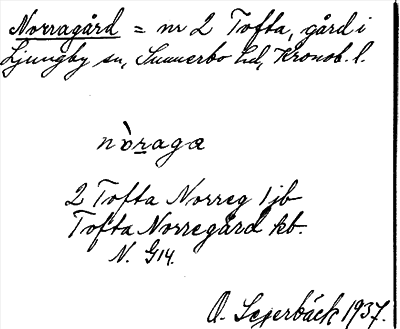 Norragård = nr 2 Tofta, gård i
Ljungby sn, Sunnerbo hd, Kronob. l.
nòragæ
2 Tofta Norreg 1 jb
Tofta Norregård kb.
N. G14.
O. Segerbäck 1937.